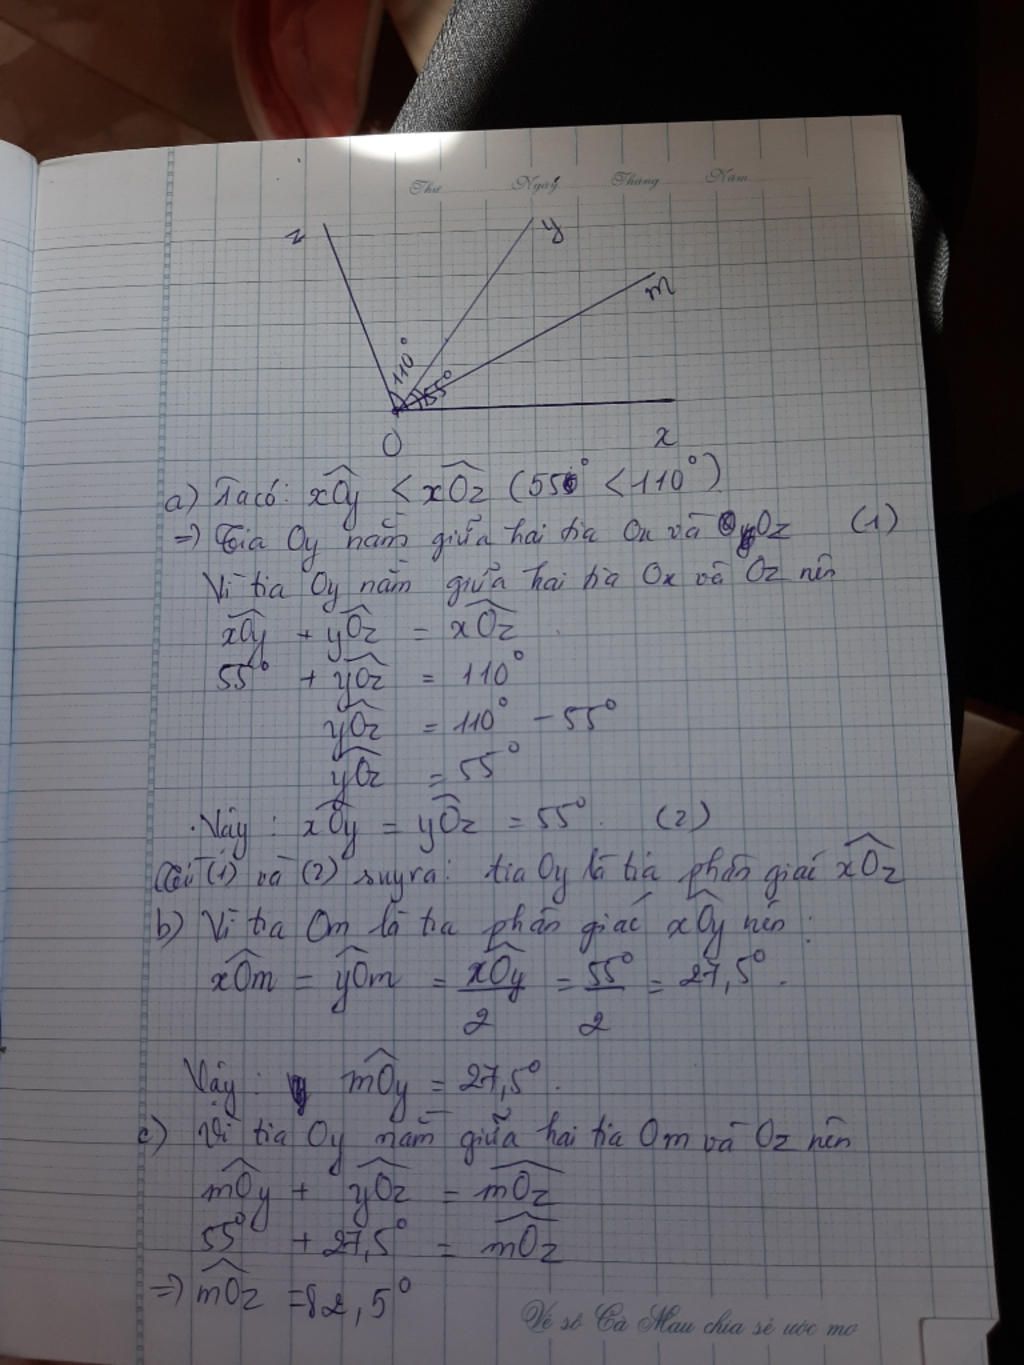 Thứ Ngày Tháng Năm
z y
m
110°
55°
O x
a) Ta có: xOy < xOz (55° < 110°)
=> Tia Oy nằm giữa hai tia Ox và Oz (1)
Vì tia Oy nằm giữa hai tia Ox và Oz nên
xOy + yOz = xOz
55° + yOz = 110°
yOz = 110° - 55°
yOz = 55°
Vậy: xOy = yOz = 55°. (2)
Từ (1) và (2) suy ra: tia Oy là tia phân giác xOz
b) Vì tia Om là tia phân giác xOy nên:
xOm = yOm = xOy/2 = 55°/2 = 27,5°.
Vậy: mOy = 27,5°.
c) Vì tia Oy nằm giữa hai tia Om và Oz nên
mOy + yOz = mOz
55° + 27,5° = mOz
=> mOz = 82,5°
Vé số Cà Mau chia sẻ ước mơ